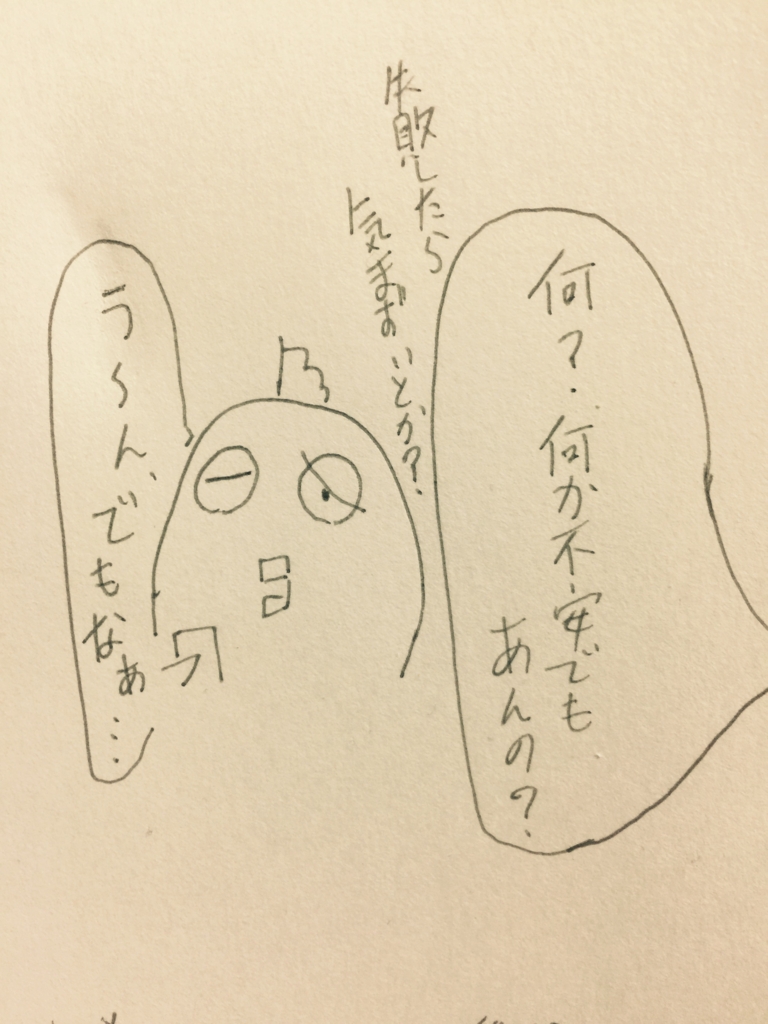 何?何か不安でも
あんの?
失敗したら
気まずいとか?
う〜ん、でもなぁ…